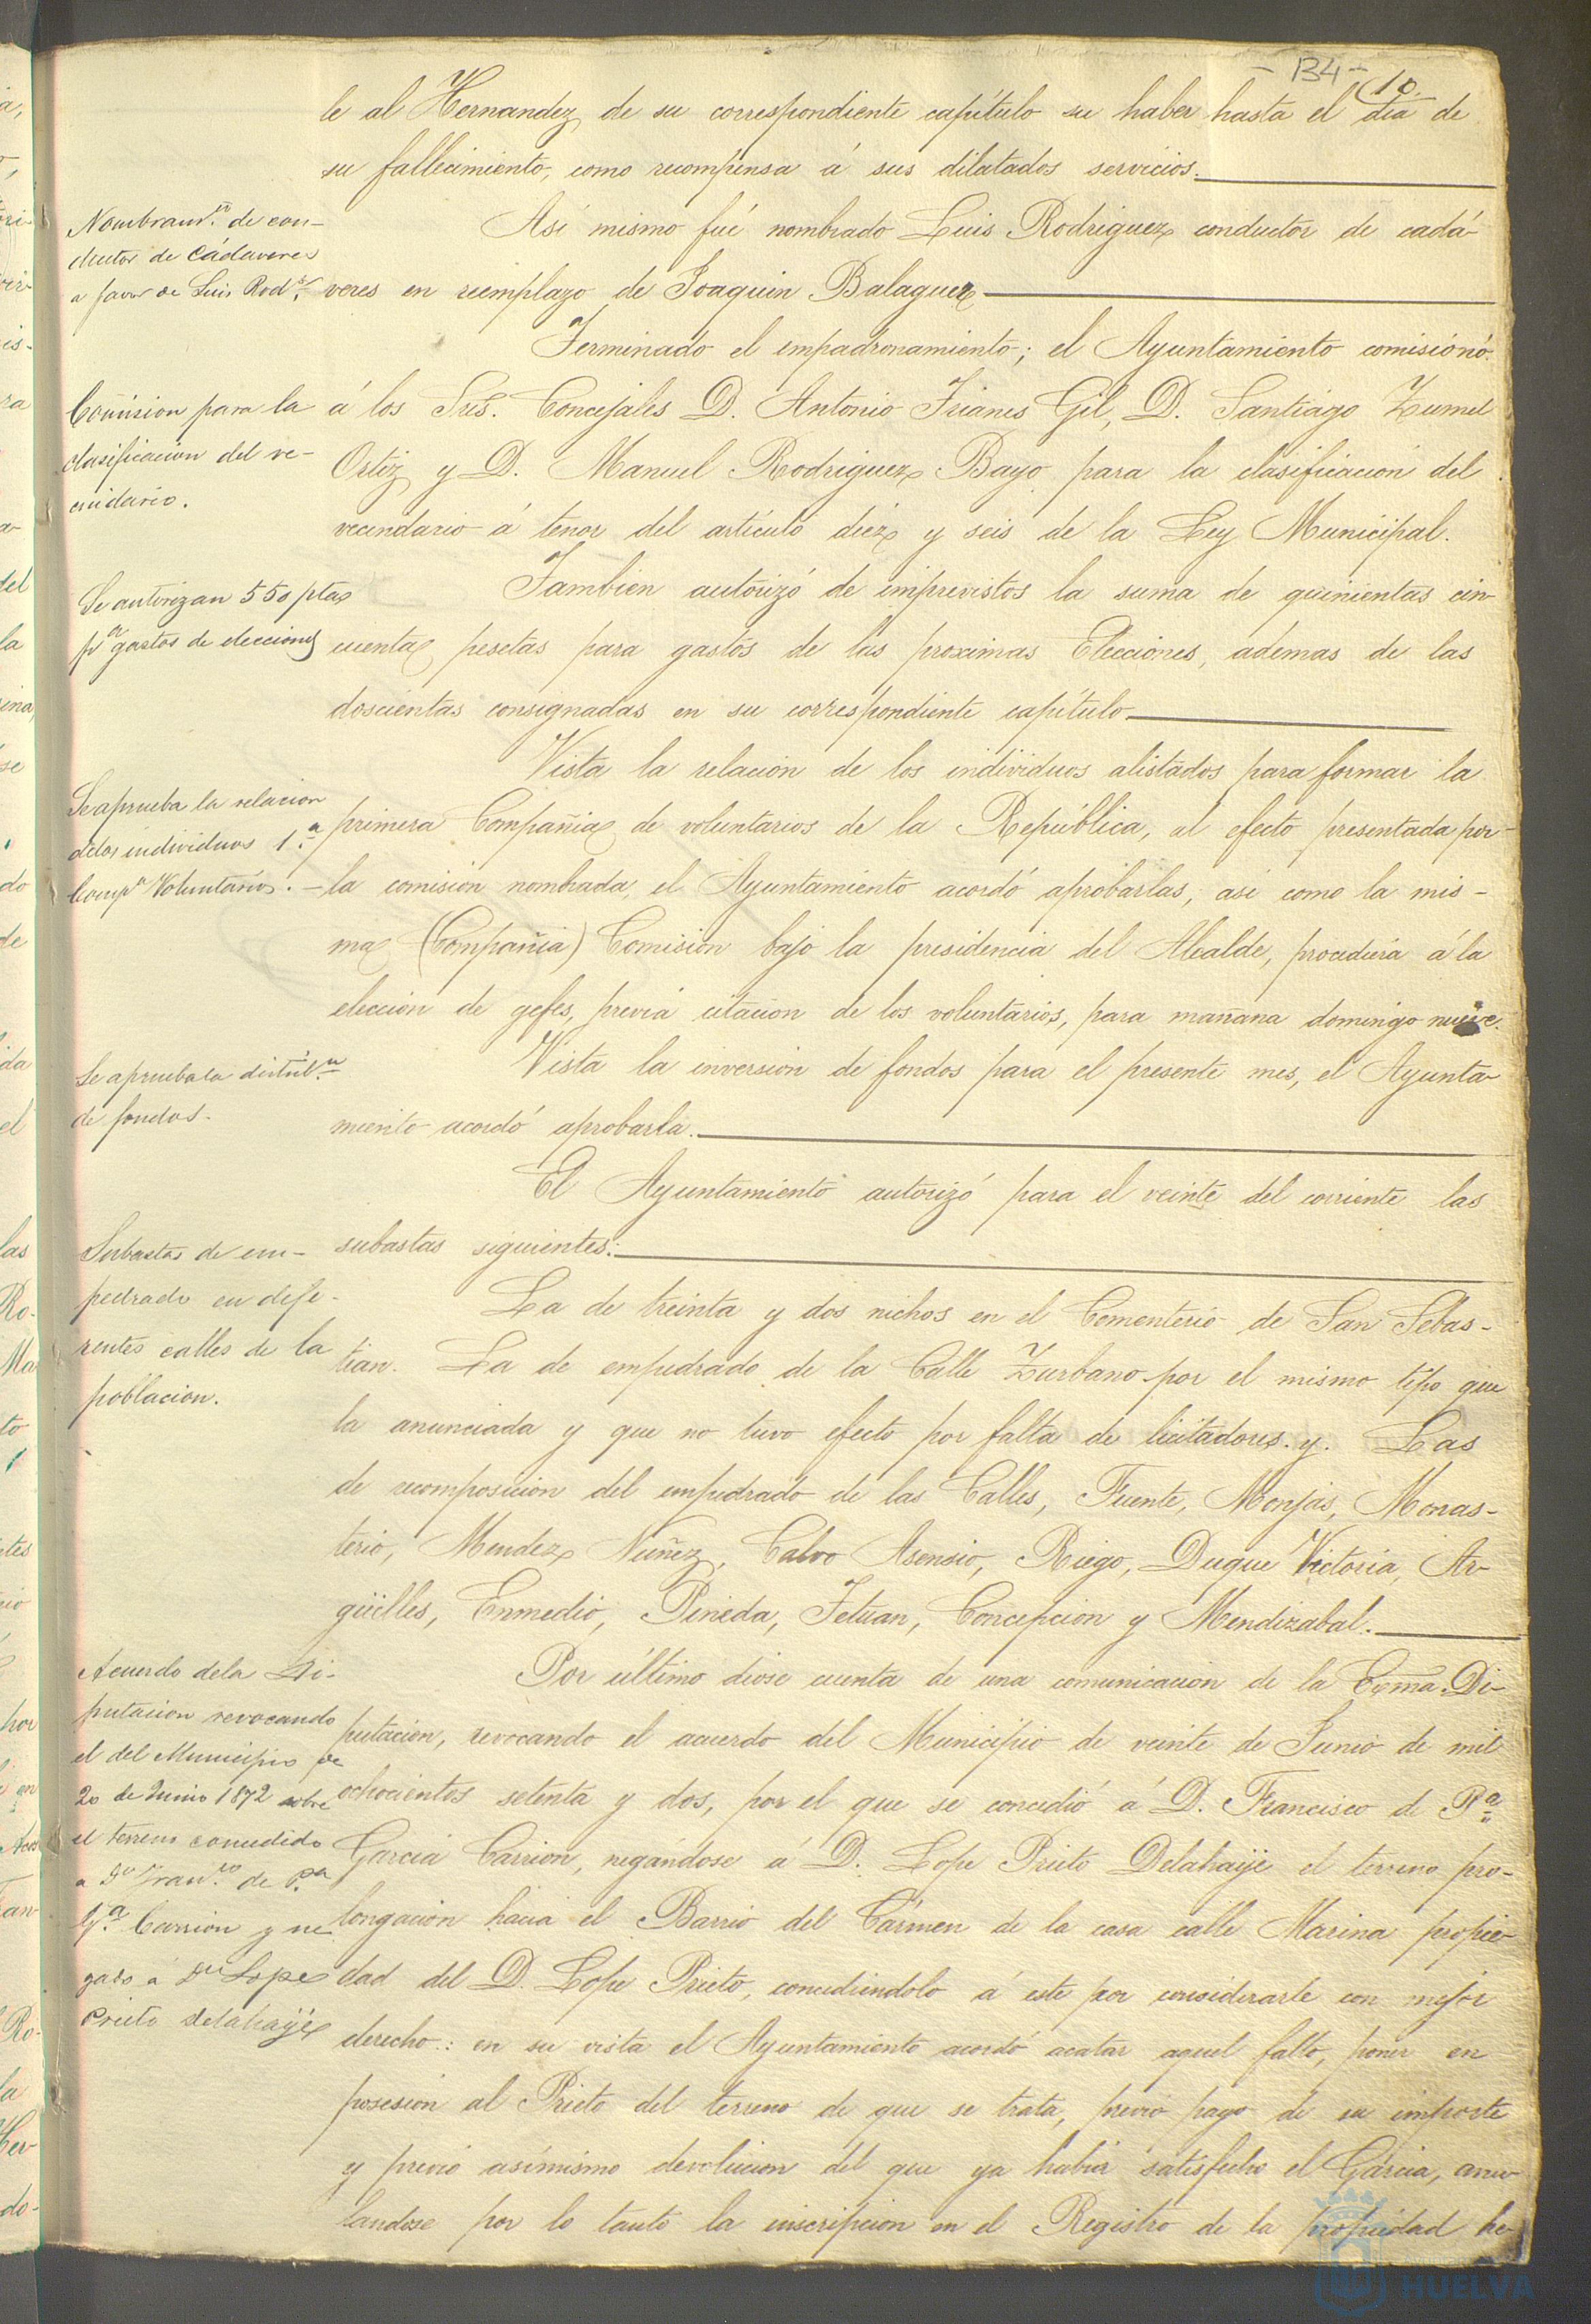 - 134 -
10.
le al Hernandez de su correspondiente capítulo su haber hasta el dia de
su fallecimiento, como recompensa á sus dilatados servicios.
Nombram.to de con-
ductor de cádaveres
a favor de Luis Rod.z
Asi mismo fué nombrado Luis Rodriguez conductor de cadá-
veres en reemplazo de Joaquin Balaguer
Terminado el empadronamiento; el Ayuntamiento comisionó
Comision para la
clasificacion del ve-
cindario.
á los Sres. Concejales D. Antonio Trianes Gil, D. Santiago Zumel
Ortiz y D. Manuel Rodriguez Bayo para la clasificacion del
vecindario á tenor del artículo diez y seis de la Ley Municipal.
Se autorizan 550 ptas
pa gastos de elecciones
Tambien autorizó de imprevistos la suma de quinientas cin
cuenta pesetas para gastos de las proximas Elecciones, ademas de las
doscientas consignadas en su correspondiente capítulo
Se aprueba la relacion
de los individuos 1.a
Comp.a Voluntarios.
Vista la relacion de los individuos alistados para formar la
primera Compañia de voluntarios de la República, al efecto presentada por
la comision nombrada, el Ayuntamiento acordó aprobarlas, asi como la mis-
ma (Compañia) Comision bajo la presidencia del Alcalde, procediera á la
eleccion de gefes, previa citacion de los voluntarios, para mañana domingo nueve.
Se aprueba la distrib.n
de fondos.
Vista la inversion de fondos para el presente mes, el Ayunta-
miento acordó aprobarla.
El Ayuntamiento autorizó para el veinte del corriente las
subastas siguientes:
Subastas de em-
pedrado en dife-
rentes calles de la
poblacion.
La de treinta y dos nichos en el Cementerio de San Sebas-
tian. La de empedrado de la Calle Zurbano por el mismo tipo que
la anunciada y que no tuvo efecto por falta de licitadores. y. Las
de recomposicion del empedrado de las Calles, Fuente, Monjas, Monas-
terio, Mendez Nuñez, Calvo Asensio, Riego, Duque Victoria, Ar-
güelles, Enmedio, Pineda, Tetuan, Concepcion y Mendizabal.
Acuerdo de la Di-
putacion revocando
el del Municipio de
20 de Junio 1872 sobre
el terreno concedido
a Dn Fran.co de P.a
G.a Carrion y ne
gado á Dn Lope
Prieto Delahaye
Por último diose cuenta de una comunicacion de la Exma. Di-
putacion, revocando el acuerdo del Municipio de veinte de Junio de mil
ochocientos setenta y dos, por el que se concedió á D. Francisco de P.a
Garcia Carrion, negándose á D. Lope Prieto Delahaije el terreno pro-
longacion hácia el Barrio del Cármen de la casa calle Marina propie-
dad del D. Lope Prieto, concediendolo á este por considerarle con mejor
derecho: en su vista el Ayuntamiento acordó acatar aquel fallo, poner en
posesion al Prieto del terreno de que se trata, previo pago de su importe
y previo asimismo devolucion del que ya habia satisfecho el Garcia, anu-
landose por lo tanto la inscripcion en el Registro de la propiedad he-
HUELVA